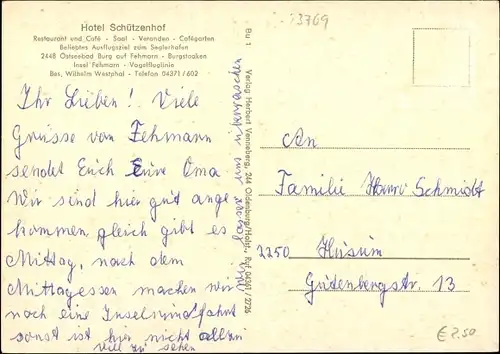 3769
Hotel Schützenhof
Restaurant und Café - Saal - Veranden - Cafégarten
Beliebtes Ausflugsziel zum Seglerhafen
2448 Ostseebad Burg auf Fehmarn - Burgstaaken
Insel Fehmarn - Vogelfluglinie
Bes. Wilhelm Westphal - Telefon 04371/602
Ihr Lieben! Viele
Grüsse von Fehmann
sendet Euch Eure Oma
Wir sind hier gut ange
kommen gleich gibt es
Mittag, nach dem
Mittagessen machen wir
noch eine Inselrundfahrt
sonst ist hir nicht allzu
viel zu sehen
Bu 1
Verlag Herbert Venneberg, 244 Oldenburg/Holst., Ruf 04361/2726
An
Familie Henri Schmidt
2250 Husum
Gudenbergstr. 13
€ 2.50